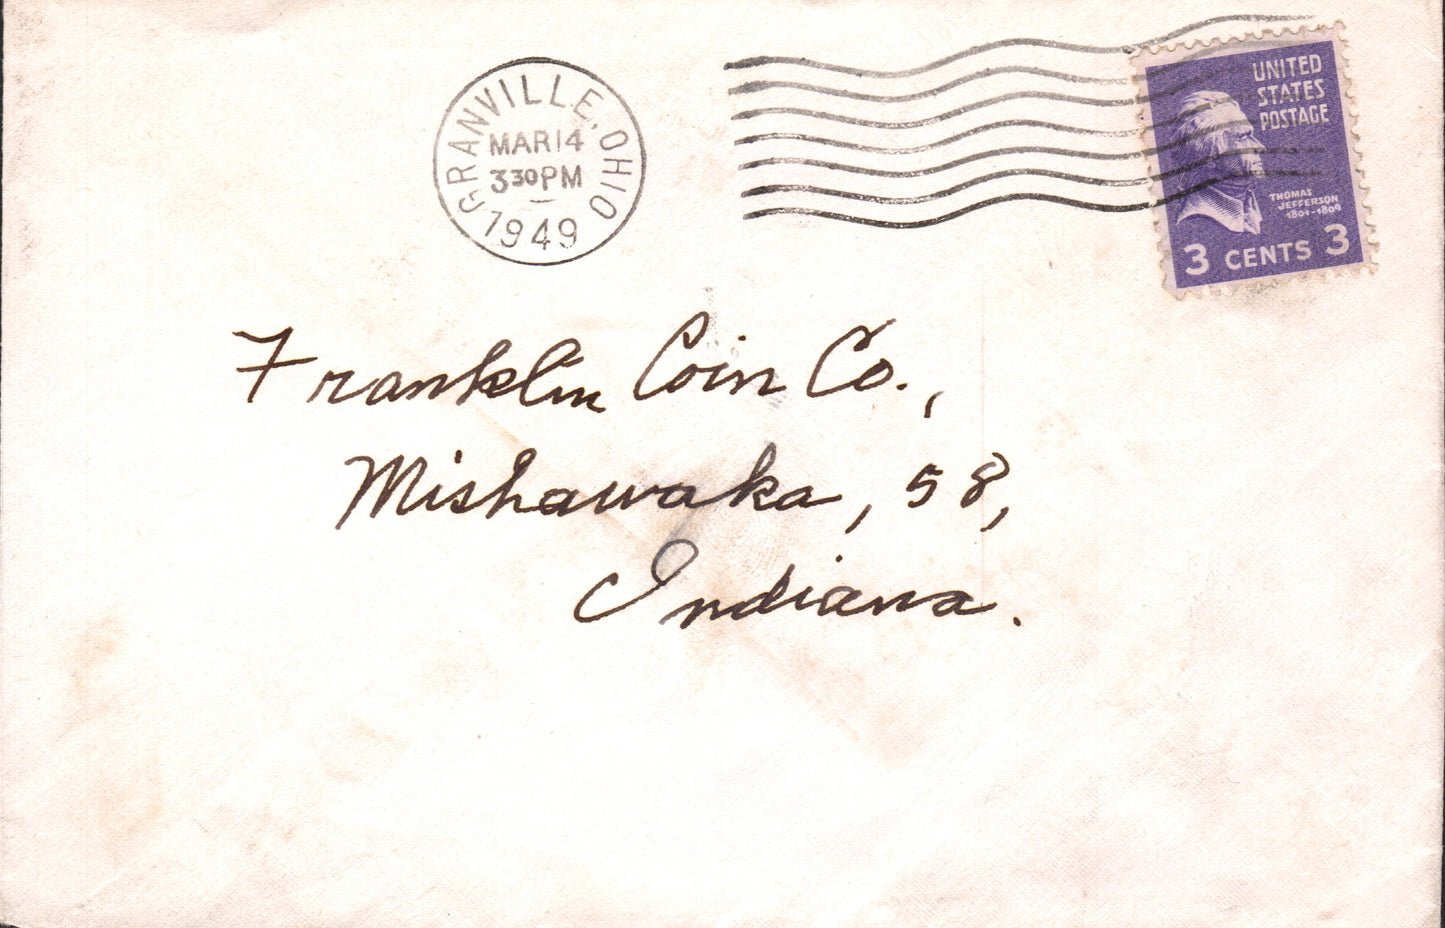 GRANVILLE, OHIO
MAR 14
3 30 PM
1949
UNITED
STATES
POSTAGE
THOMAS
JEFFERSON
1801-1809
3 CENTS 3
Franklin Coin Co.,
Mishawaka, 58,
Indiana.